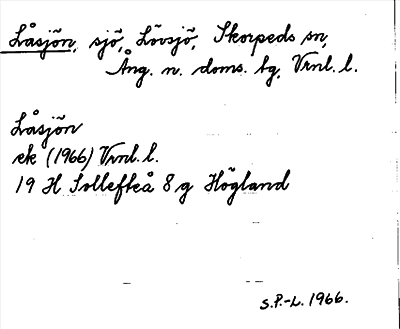 Låsjön, sjö, Lövsjö, Skorpeds sn,
Ång. n. doms. tg, Vrnl. l.
Låsjön
ek (1966) Vrnl. l.
19 H Sollefteå 8 g Högland
S.P.-L. 1966.